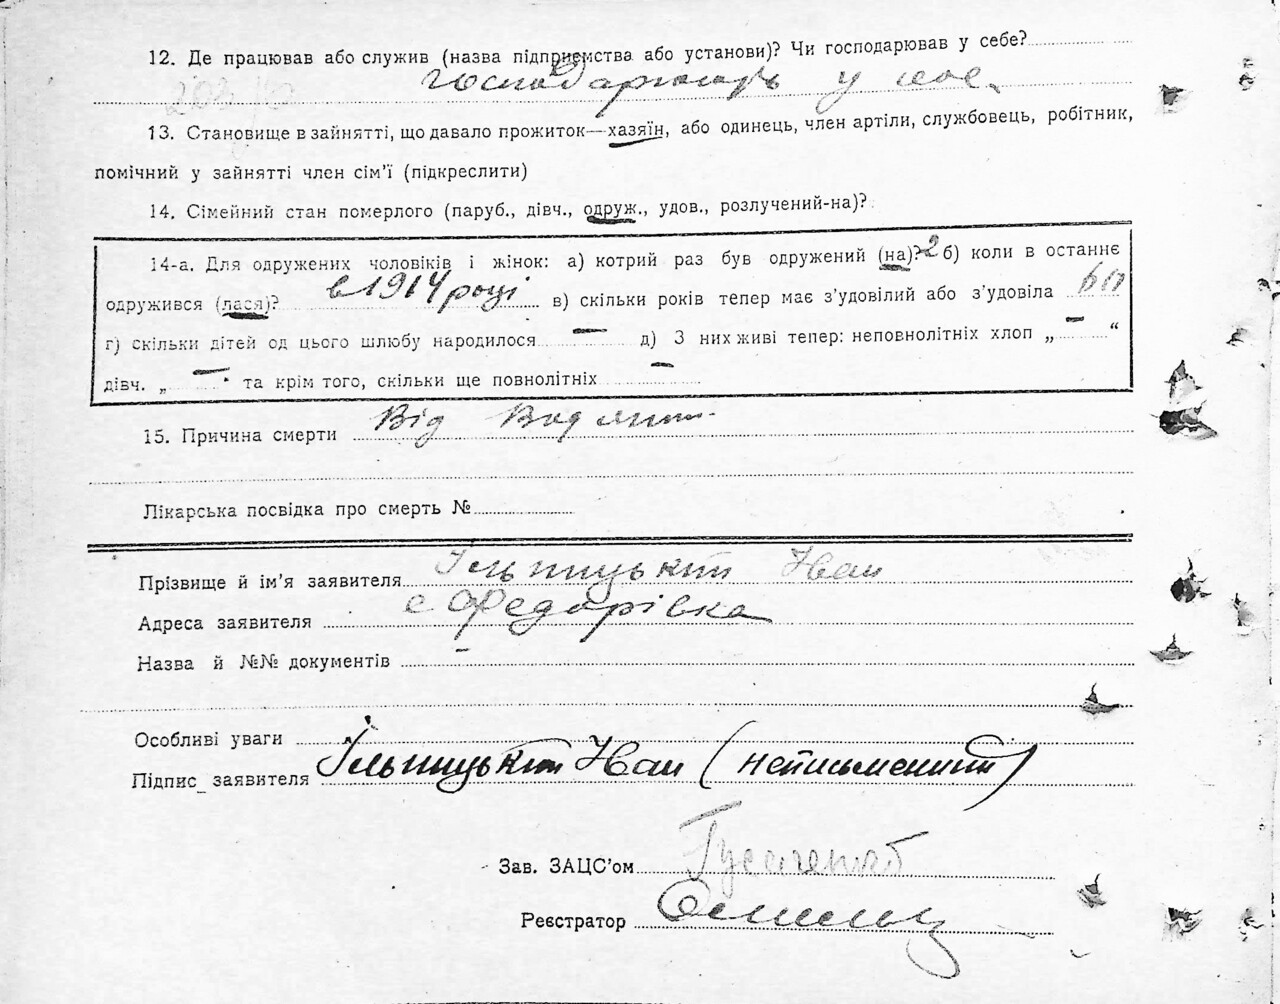 12. Де працював або служив (назва підприємства або установи)? Чи господарював у себе?
господарюють у себе
13. Становище в зайнятті, що давало прожиток—хазяїн, або одинець, член артіли, службовець, робітник,
помічний у зайнятті член сім'ї (підкреслити)
14. Сімейний стан померлого (паруб., дівч., одруж., удов., розлучений-на)?
14-а. Для одружених чоловіків і жінок: а) котрий раз був одружений (на)? 2 б) коли в останнє
одружився (лася)? в 1914 році в) скільки років тепер має з'удовілий або з'удовіла 60
г) скільки дітей од цього шлюбу народилося — д) З них живі тепер: неповнолітніх хлоп „ — “
дівч. „ — “ та крім того, скільки ще повнолітніх —
15. Причина смерти Від
Лікарська посвідка про смерть №
Прізвище й ім'я заявителя Ільницький Іван
Адреса заявителя с Федорівка
Назва й №№ документів –
Особливі уваги
Підпис заявителя Ільницький Іван (неписьменний)
Зав. ЗАЦС'ом
Реєстратор